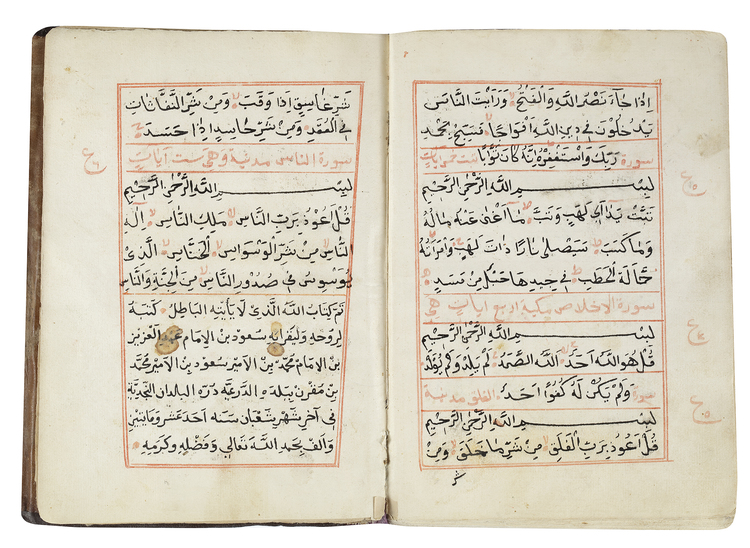 إذا جاء نصر الله والفتح ورأيت الناس
يدخلون في دين الله أفواجا فسبح بحمد
ربك واستغفره إنه كان توابا سورة تبت خمس آيات
بسم الله الرحمن الرحيم
تبت يدا أبي لهب وتب ما أغنى عنه ماله
وما كسب سيصلى نارا ذات لهب وامرأته
حمالة الحطب في جيدها حبل من مسد
سورة الإخلاص مكية أربع آيات وهي
بسم الله الرحمن الرحيم
قل هو الله أحد الله الصمد لم يلد ولم يولد
ولم يكن له كفوا أحد سورة الفلق مدنية
بسم الله الرحمن الرحيم
قل أعوذ برب الفلق من شر ما خلق ومن
شر
شر غاسق إذا وقب ومن شر النفاثات
في العقد ومن شر حاسد إذا حسد
سورة الناس مدنية وهي ست آيات
بسم الله الرحمن الرحيم
قل أعوذ برب الناس ملك الناس إله
الناس من شر الوسواس الخناس الذي
يوسوس في صدور الناس من الجنة والناس
تم كتاب الله الذي لا يأتيه الباطل كتبه
لروحه وليقرأ به سعود بن الإمام عبد العزيز
بن الإمام محمد بن الأمير سعود بن الأمير محمد
بن مقرن ببلده الدرعية درة البلدان النجدية
في آخر شهر شعبان سنة أحد عشر ومايتين
وألف بحمد الله تعالى وفضله وكرمه